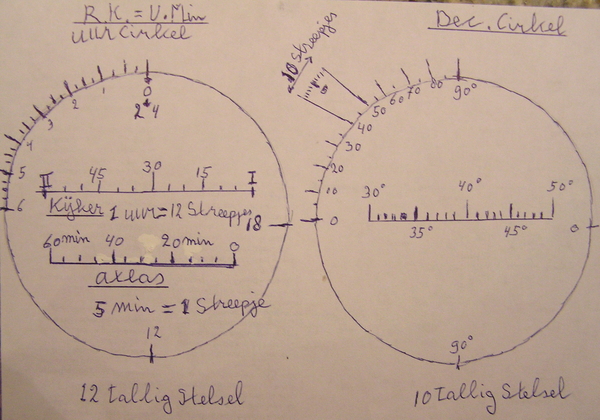 R.K. = U.Min
uur Cirkel
0
24
1
2
3
4
5
6
II 45 30 15 I
Kijker 1 uur = 12 Streepjes
18
60min 40 20 min 0
atlas
5 min = 1 Streepje
12
12 tallig Stelsel
Dec. Cirkel
10 Streepjes
90°
80
70
60
50
40
30
20
10
0
30° 40° 50°
35° 45°
0
90°
10 tallig Stelsel